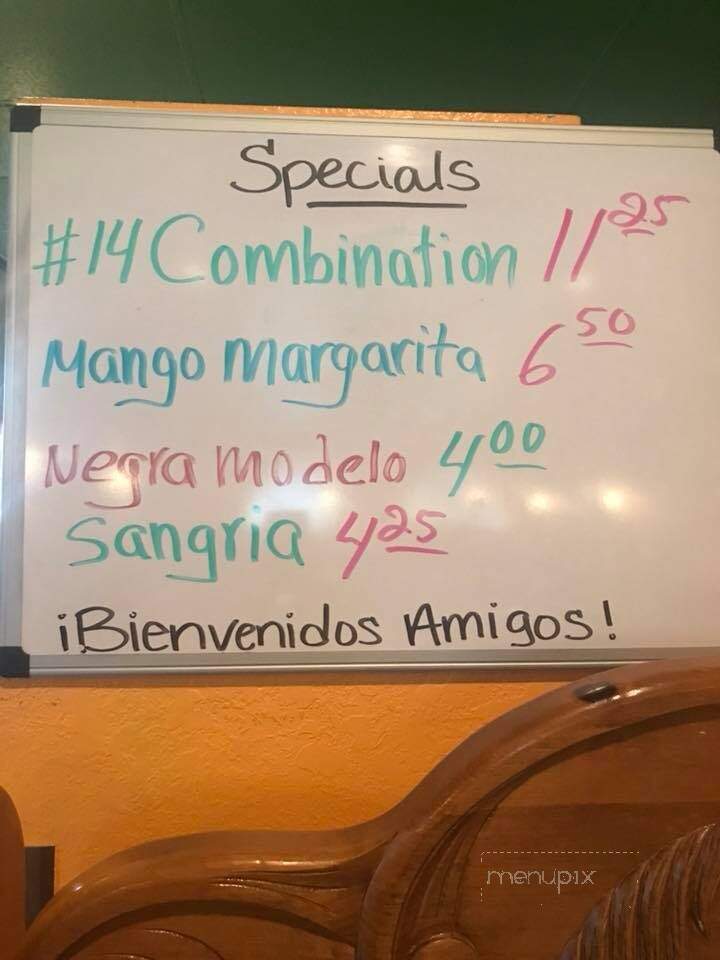 Specials
#14 Combination 11 25
Mango Margarita 6 50
Negra Modelo 4 00
Sangria 4 25
¡Bienvenidos Amigos!
menupix